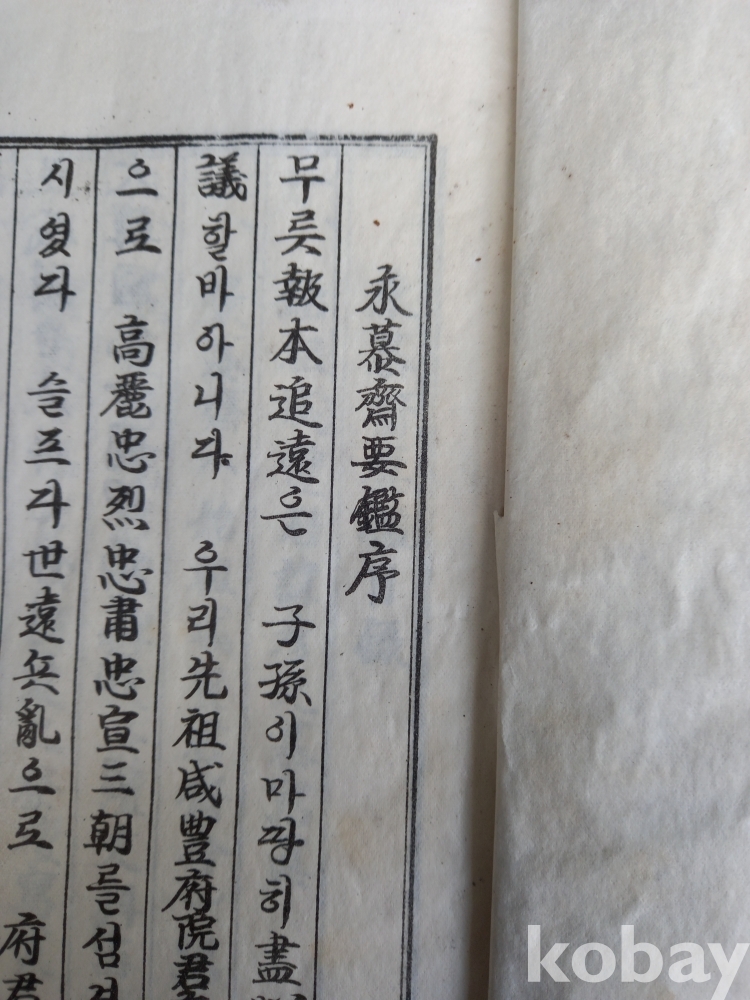 永慕齋要鑑序
무릇報本追遠은 子孫이마땅히盡
議할바아니다 우리先祖咸豊府院君
으로 高麗忠烈忠肅忠宣三朝를섬
시엿다 슬프다世遠兵亂으로 府君
kobay